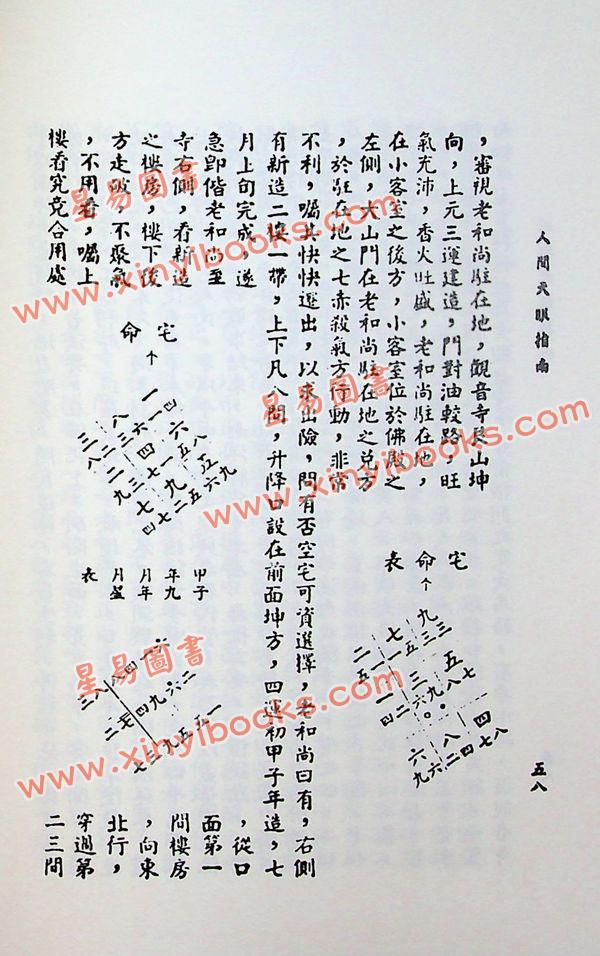 人間天眼指南
五八
，審視老和尚駐在地，觀音寺艮山坤
向，上元三運建造，門對油較路，旺
氣充沛，香火旺盛，老和尚駐在地，
在小客室之後方，小客室位於佛殿之
左側，大山門在老和尚駐在地之兌方
，於駐在地之七赤殺氣方行動，非常
宅命表
不利，囑其快快遷出，以求出險，問有否空宅可資選擇，老和尚曰有，右側
有新造二樓一帶，上下凡八間，升降口設在前面坤方，四運初甲子年造，七
月上旬完成，遂
急即偕老和尚至
寺右側，看新造
之樓房，樓下後
方走破，不聚氣
，不用看，囑上
樓看究竟合用處
宅命
甲子
年九
月年
月星
表
，從口
面第一
間樓房
，向東
北行，
穿過第
二三間
星易圖書
www.xinyibooks.com
星易圖書
www.xinyibooks.com
星易圖書
www.xinyibooks.com
星易圖書
www.xinyibooks.com